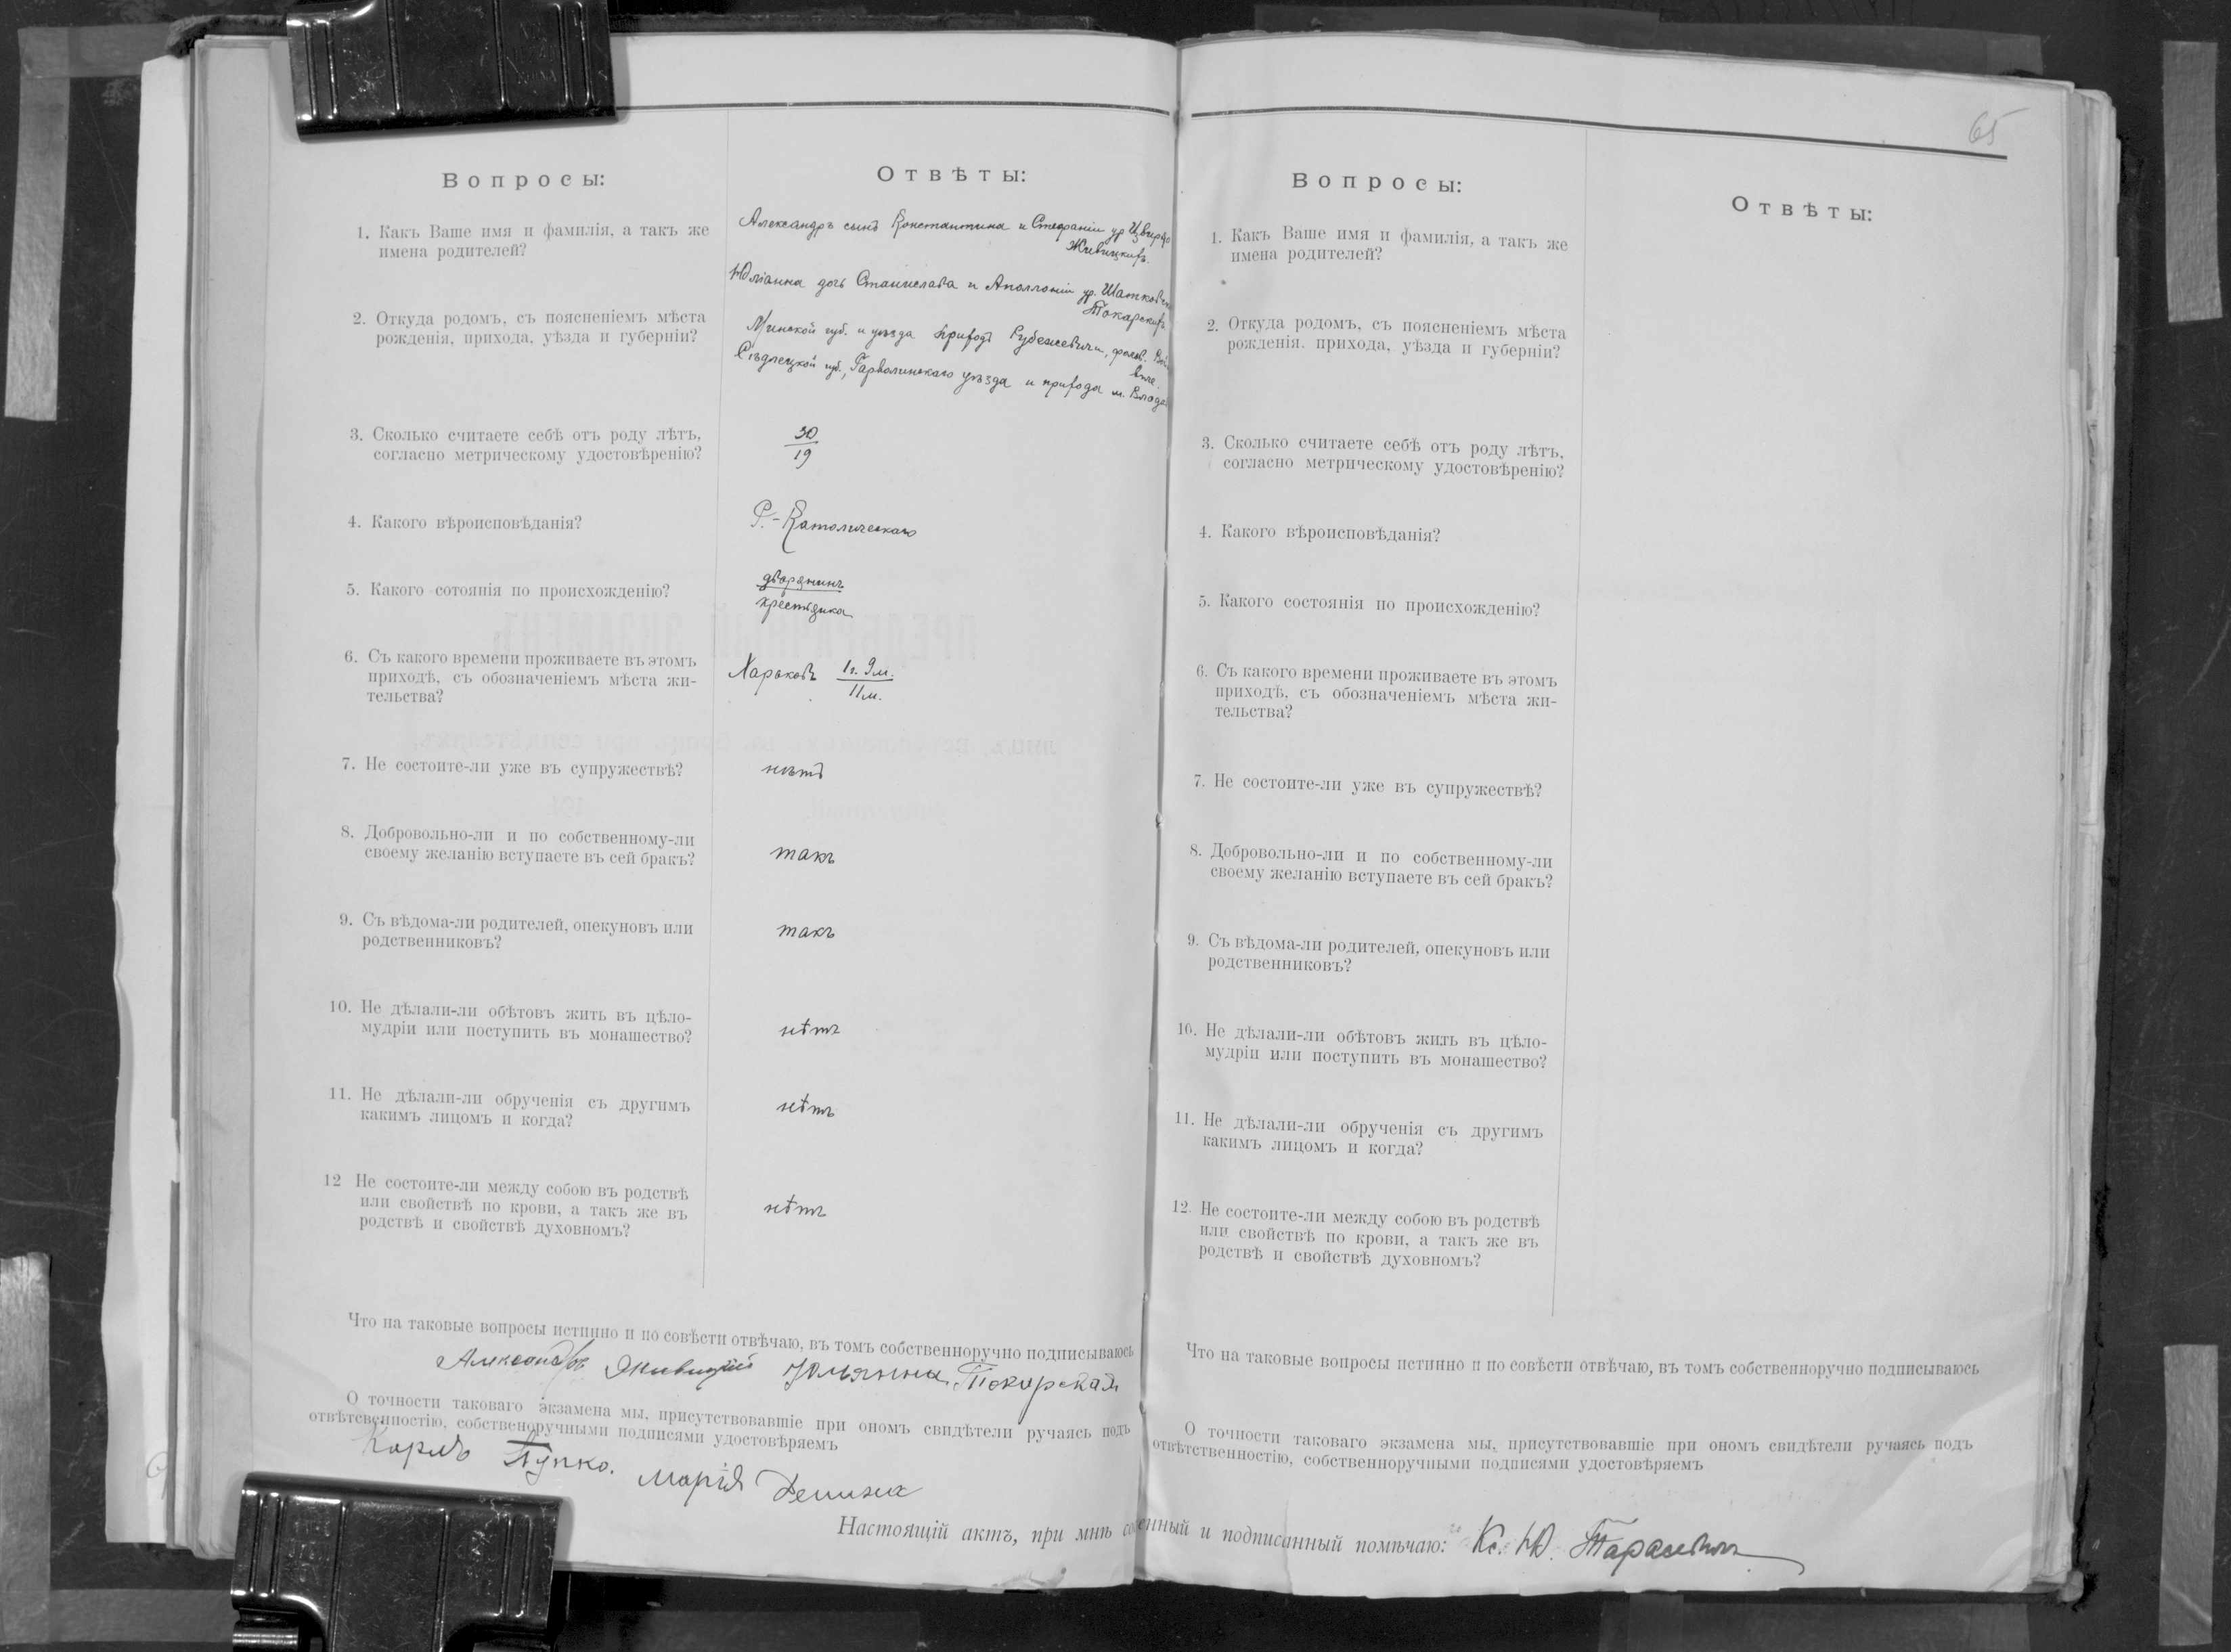 65
Вопросы:
Отвѣты:
1. Какъ Ваше имя и фамилія, а такъ же
имена родителей?
Александръ сынъ Константина и Стефаніи ур
Живицкихъ.
Юліанна дочь Станислава и Аполлоніи ур.
Токарскихъ
2. Откуда родомъ, съ поясненіемъ мѣста
рожденія, прихода, уѣзда и губерніи?
Минской губ. и уѣзда приходъ Рубежевичи,
Сѣдлецкой губ., Гарволинскаго уѣзда и прихода м.
3. Сколько считаете себѣ отъ роду лѣтъ,
согласно метрическому удостовѣренію?
30
19
4. Какого вѣроисповѣданія?
Р.-Католическаго
5. Какого сотоянія по происхожденію?
дворянинъ
крестьянка
6. Съ какого времени проживаете въ этомъ
приходѣ, съ обозначеніемъ мѣста жи-
тельства?
Харьковъ 1г. 9м.
11м.
7. Не состоите-ли уже въ супружествѣ?
нѣтъ
8. Добровольно-ли и по собственному-ли
своему желанію вступаете въ сей бракъ?
такъ
9. Съ вѣдома-ли родителей, опекуновъ или
родственниковъ?
такъ
10. Не дѣлали-ли обѣтовъ жить въ цѣло-
мудріи или поступить въ монашество?
нѣтъ
11. Не дѣлали-ли обрученія съ другимъ
какимъ лицомъ и когда?
нѣтъ
12 Не состоите-ли между собою въ родствѣ
или свойствѣ по крови, а такъ же въ
родствѣ и свойствѣ духовномъ?
нѣтъ
Что на таковые вопросы истинно и по совѣсти отвѣчаю, въ томъ собственноручно подписываюсь
Александръ Живицкій Юльянна Токарская
О точности таковаго экзамена мы, присутствовавшіе при ономъ свидѣтели ручаясь подъ
отвѣтсвенностію, собственоручными подписями удостовѣряемъ
Карлъ Пупко. Марія
Вопросы:
Отвѣты:
1. Какъ Ваше имя и фамилія, а такъ же
имена родителей?
2. Откуда родомъ, съ поясненіемъ мѣста
рожденія. прихода, уѣзда и губерніи?
3. Сколько считаете себѣ отъ роду лѣтъ,
согласно метрическому удостовѣренію?
4. Какого вѣроисповѣданія?
5. Какого состоянія по происхожденію?
6. Съ какого времени проживаете въ этомъ
приходѣ, съ обозначеніемъ мѣста жи-
тельства?
7. Не состоите-ли уже въ супружествѣ?
8. Добровольно-ли и по собственному-ли
своему желанію вступаете въ сей бракъ?
9. Съ вѣдома-ли родителей, опекуновъ или
родственниковъ?
10. Не дѣлали-ли обѣтовъ жить въ цѣло-
мудріи или поступить въ монашество?
11. Не дѣлали-ли обрученія съ другимъ
какимъ лицомъ и когда?
12. Не состоите-ли между собою въ родствѣ
или свойствѣ по крови, а такъ же въ
родствѣ и свойствѣ духовномъ?
Что на таковые вопросы истинно и по совѣсти отвѣчаю, въ томъ собственноручно подписываюсь
О точности таковаго экзамена мы, присутствовавшіе при ономъ свидѣтели ручаясь подъ
отвѣтственностію, собственноручными подписями удостовѣряемъ
Настоящій актъ, при мнѣ и подписанный помѣчаю: Кс. Ю. Тарасевичъ